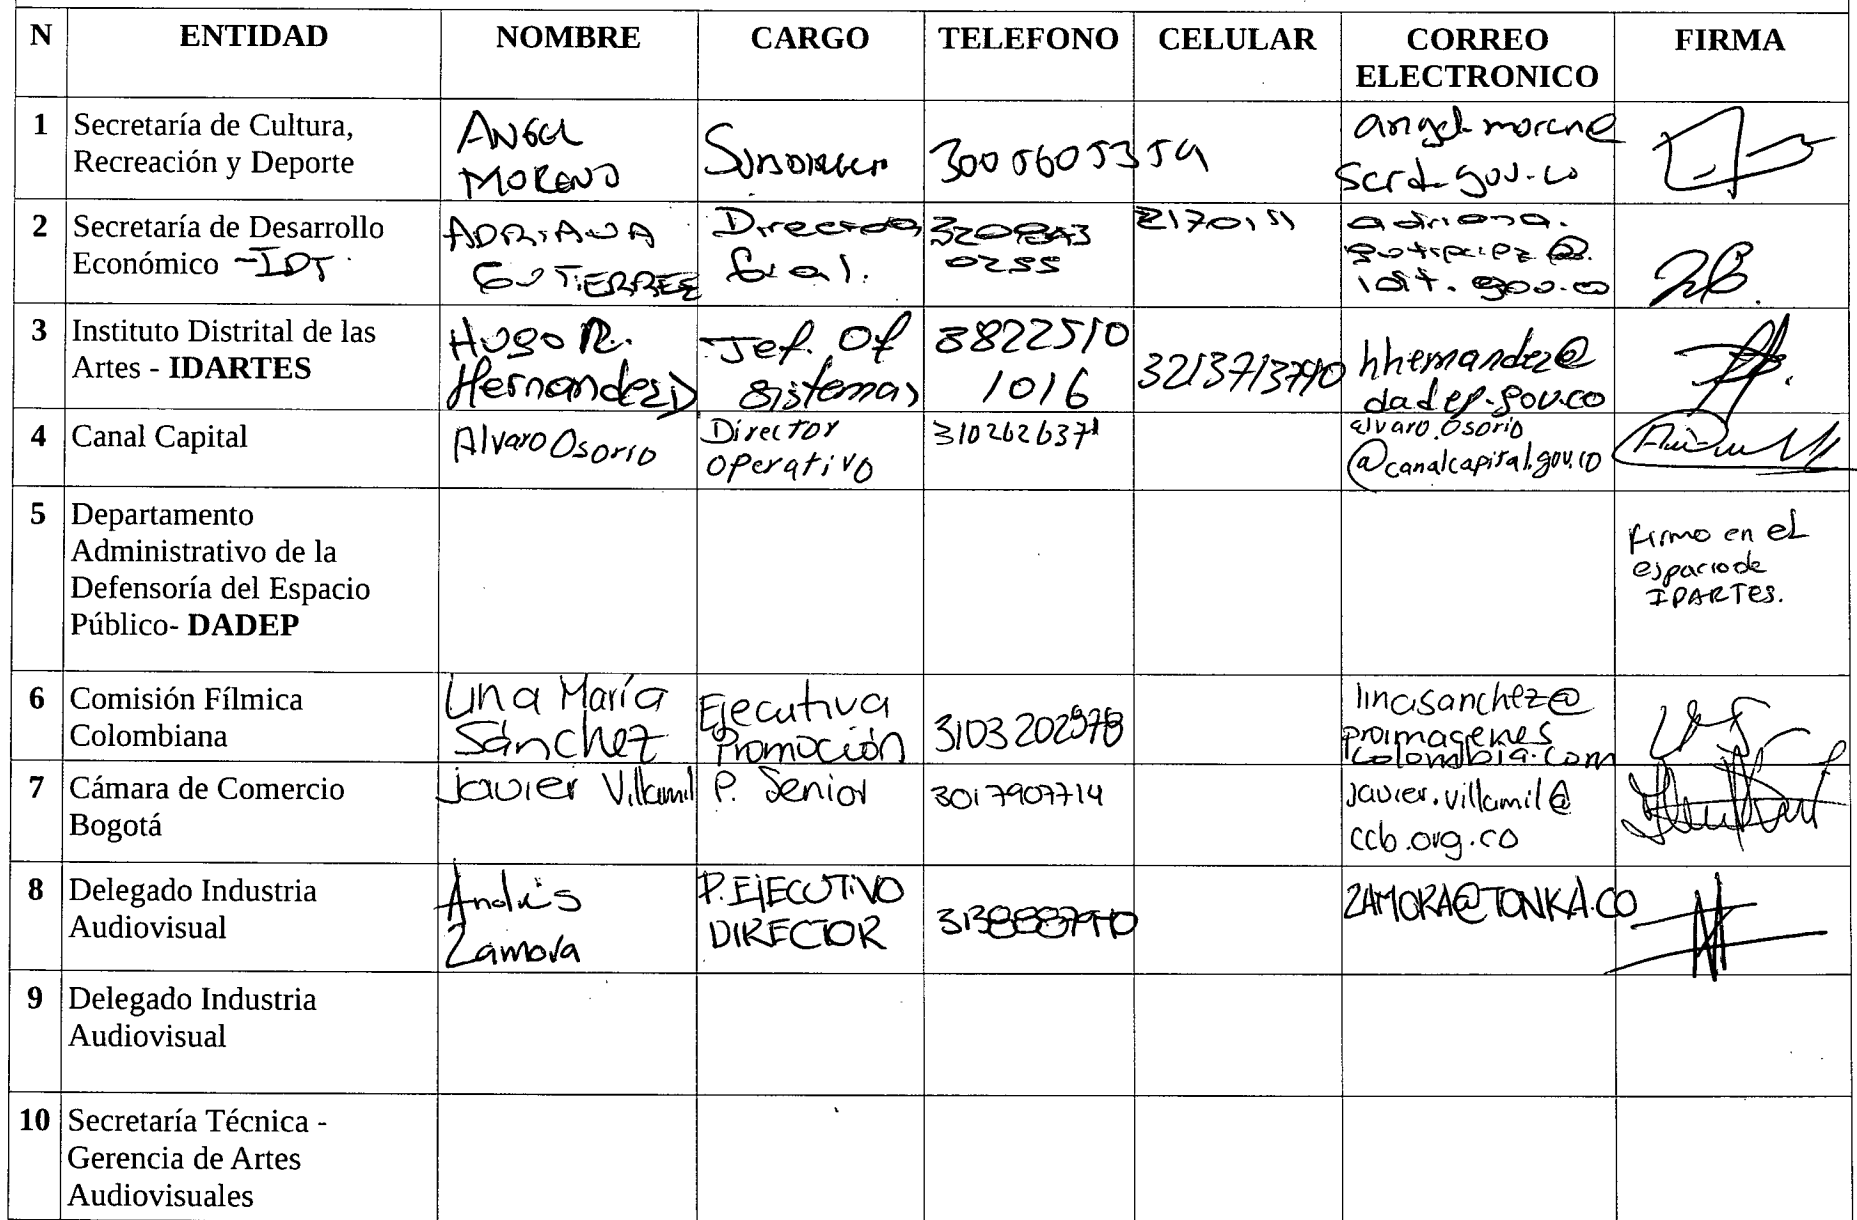 N ENTIDAD NOMBRE CARGO TELEFONO CELULAR CORREO ELECTRONICO FIRMA
1 Secretaría de Cultura, Recreación y Deporte
ANGEL
MORENO
3005605359
angel.moreno@
scrd.gov.co
2 Secretaría de Desarrollo Económico -IDT.
ADRIANA
GUTIERREZ
Directora
Gral.
0255
2170151
adriana.
gutierrez@
idt.gov.co
3 Instituto Distrital de las Artes - IDARTES
Hugo R.
Hernandez D
Jef. Of
sistemas
3822510
1016
hhernandez@
dadep.gov.co
4 Canal Capital
Alvaro Osorio
Director
operativo
3102626371
alvaro.osorio
@canalcapital.gov.co
5 Departamento Administrativo de la Defensoría del Espacio Público- DADEP
Firmo en el
espacio de
IDARTES.
6 Comisión Fílmica Colombiana
Lina María
Sánchez
Ejecutiva
Promoción
3103202978
linasanchez@
proimagenes
colombia.com
7 Cámara de Comercio Bogotá
Javier Villamil
P. Senior
3017907714
javier.villamil@
ccb.org.co
8 Delegado Industria Audiovisual
Andrés
Zamora
P. EJECUTIVO
DIRECTOR
ZAMORA@TONKA.CO
9 Delegado Industria Audiovisual
10 Secretaría Técnica - Gerencia de Artes Audiovisuales